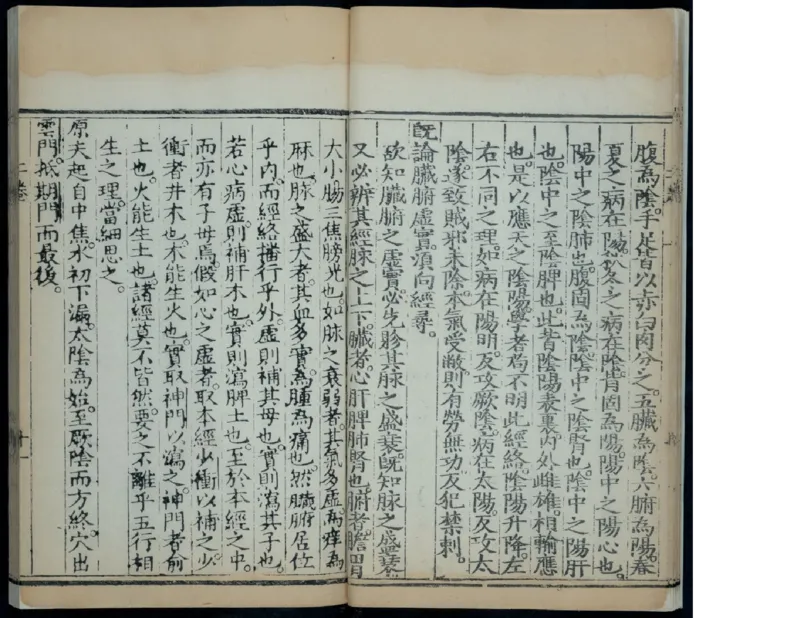 腹為陰。手足皆以赤白肉分之。五臟為陰。六腑為陽。春
夏之病在陽。秋冬之病在陰。背固為陽。陽中之陽心也。
陽中之陰肺也。腹固為陰。陰中之陰腎也。陰中之陽肝
也。陰中之至陰脾也。此皆陰陽表裏內外雌雄相輸應
也。是以應天之陰陽。學者苟不明此經絡。陰陽升降。左
右不同之理。如病在陽明。反攻厥陰。病在太陽。反攻太
陰。遂致賊邪未除。本氣受蔽。則有勞無功。反犯禁刺。
既論臟腑虛實。須向經尋。
欲知臟腑之虛實。必先胗其脉之盛衰。既知脉之盛衰。
又必辨其經脉之上下。臟者。心肝脾肺腎也。腑者。膽胃
大小腸三焦膀胱也。如脉之衰弱者。其氣多虛。為痒為
麻也。脉之盛大者。其血多實。為腫為痛也。然臟腑居位
乎內。而經絡播行乎外。虛則補其母也。實則瀉其子也。
若心病虛則補肝木也。實則瀉脾土也。至於本經之中。
而亦有子母焉。假如心之虛者。取本經少衝以補之。少
衝者井木也。木能生火也。實取神門以瀉之。神門者俞
土也。火能生土也。諸經莫不皆然。要之不離乎五行相
生之理。當細思之。
原夫起自中焦。水初下漏。太陰為始。至厥陰而方終。穴出
雲門。抵期門而最後。
二卷
十一